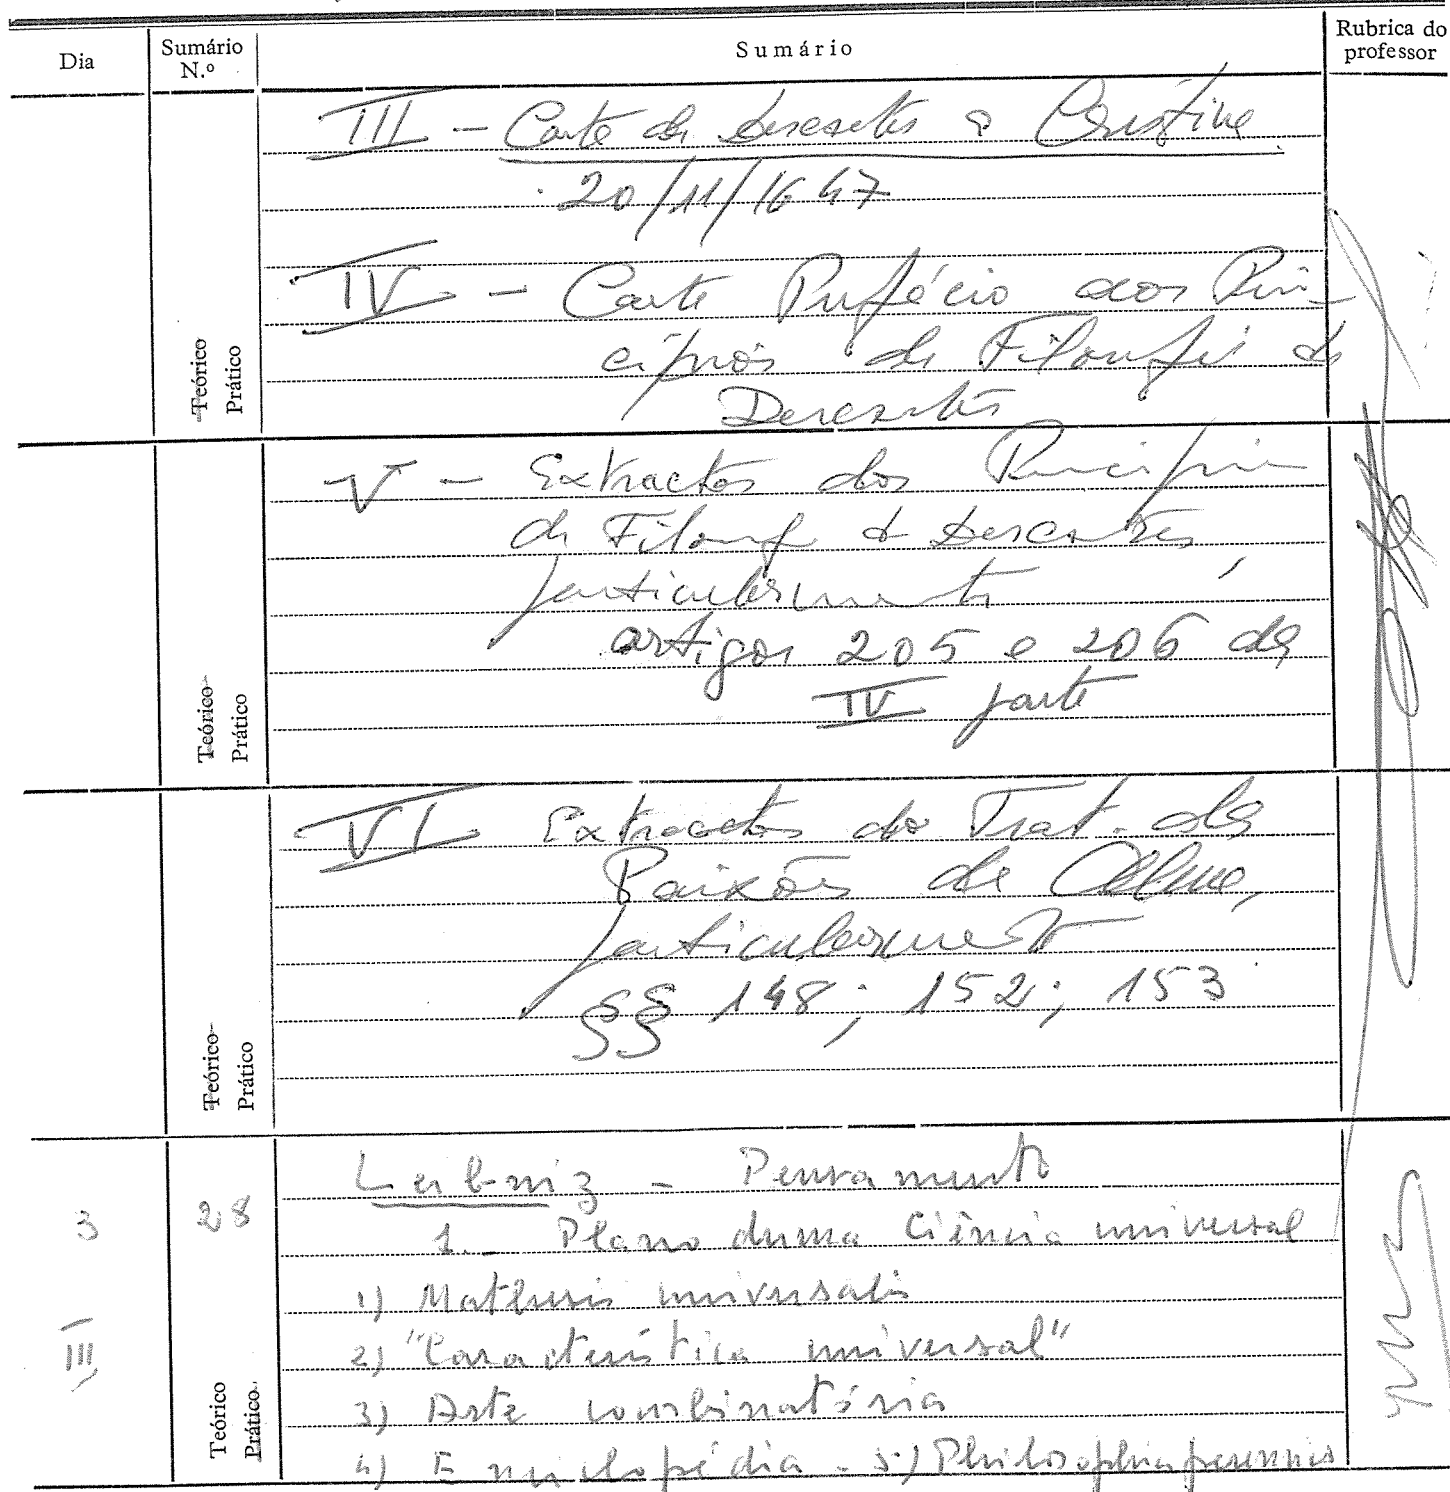 Dia
Sumário
N.º
Sumário
Rubrica do
professor
III - Carta de Descartes a Cristina
20/11/1647
IV - Carta Prefácio aos Prin-
cípios da Filosofia de
Descartes
Teórico
Prático
V - Extractos dos Princípios
da Filosof de Descartes,
particularmente
artigos 205 e 206 da
IV parte
Teórico
Prático
VI Extractos do Trat. das
Paixões da Alma,
particularmente
§§ 148; 152; 153
Teórico
Prático
3
III
28
Leibniz - Pensamento
1. - Plano duma Ciência universal
1) Mathesis universalis
2) "Característica universal"
3) Arte combinatória
4) Enciclopédia - 5) Philosophia perennis
Teórico
Prático